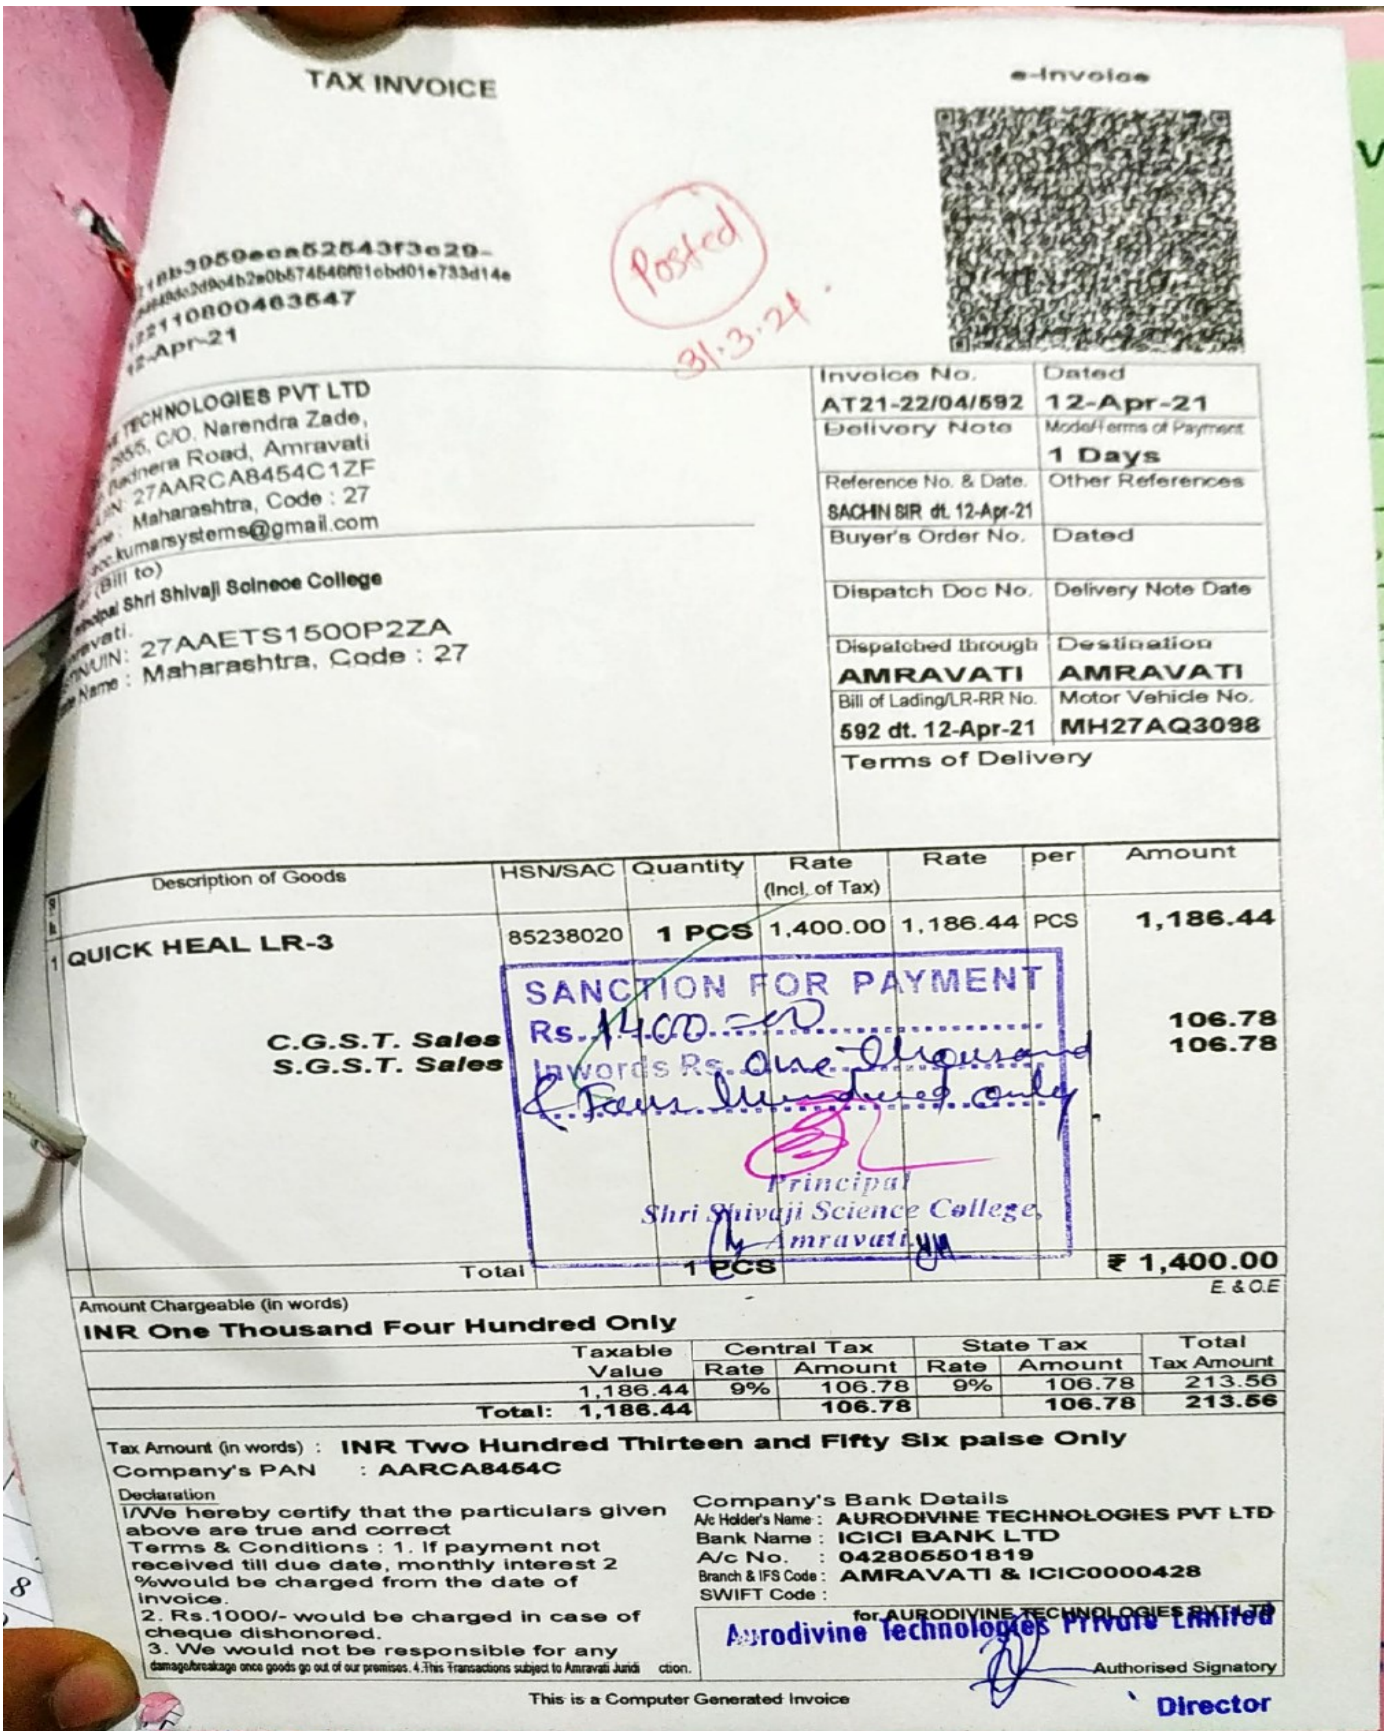 TAX INVOICE
e-Invoice
Posted
31.3.21.
12-Apr-21
TECHNOLOGIES PVT LTD
C/O. Narendra Zade,
Road, Amravati
27AARCA8454C1ZF
Maharashtra, Code : 27
kumarsystems@gmail.com
(Bill to)
Shri Shivaji Scineoe College
27AAETS1500P2ZA
Name : Maharashtra, Code : 27
Invoice No. Dated
AT21-22/04/592 12-Apr-21
Delivery Note Mode/Terms of Payment
1 Days
Reference No. & Date. Other References
SACHIN SIR dt. 12-Apr-21
Buyer's Order No. Dated
Dispatch Doc No. Delivery Note Date
Dispatched through Destination
AMRAVATI AMRAVATI
Bill of Lading/LR-RR No. Motor Vehicle No.
592 dt. 12-Apr-21 MH27AQ3098
Terms of Delivery
Description of Goods HSN/SAC Quantity Rate Rate per Amount
(Incl. of Tax)
1 QUICK HEAL LR-3 85238020 1 PCS 1,400.00 1,186.44 PCS 1,186.44
SANCTION FOR PAYMENT
Rs. 1400=00
C.G.S.T. Sales 106.78
S.G.S.T. Sales 106.78
Inwords Rs. One thousand
& Four hundred only
Principal
Shri Shivaji Science College,
Amravati.
Total 1 PCS ₹ 1,400.00
E. & O.E
Amount Chargeable (in words)
INR One Thousand Four Hundred Only
Taxable Central Tax State Tax Total
Value Rate Amount Rate Amount Tax Amount
1,186.44 9% 106.78 9% 106.78 213.56
Total: 1,186.44 106.78 106.78 213.56
Tax Amount (in words) : INR Two Hundred Thirteen and Fifty Six paise Only
Company's PAN : AARCA8454C
Declaration
I/We hereby certify that the particulars given
above are true and correct
Terms & Conditions : 1. If payment not
received till due date, monthly interest 2
%would be charged from the date of
invoice.
2. Rs.1000/- would be charged in case of
cheque dishonored.
3. We would not be responsible for any
damage/breakage once goods go out of our premises. 4.This Transactions subject to Amravati Juridi ction.
Company's Bank Details
A/c Holder's Name : AURODIVINE TECHNOLOGIES PVT LTD
Bank Name : ICICI BANK LTD
A/c No. : 042805501819
Branch & IFS Code : AMRAVATI & ICIC0000428
SWIFT Code :
for AURODIVINE TECHNOLOGIES PVT LTD
Aurodivine Technologies Private Limited
Authorised Signatory
Director
This is a Computer Generated Invoice
8